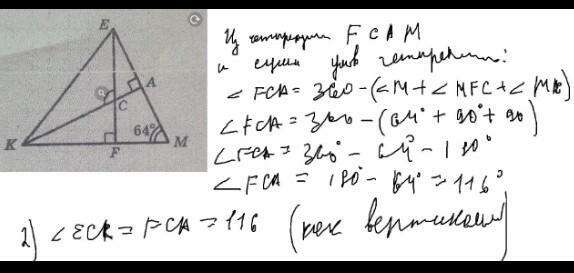 E
A
C
K
F
64°
M
Из четырехуг FCAM
и сумм углов четырехуг:
∠FCA = 360 - (∠M + ∠MFC + ∠
∠FCA = 360 - (64° + 90° + 90)
∠FCA = 360° - 64° - 180°
∠FCA = 180° - 64° = 116°
2) ∠ECK = FCA = 116 (как вертикал